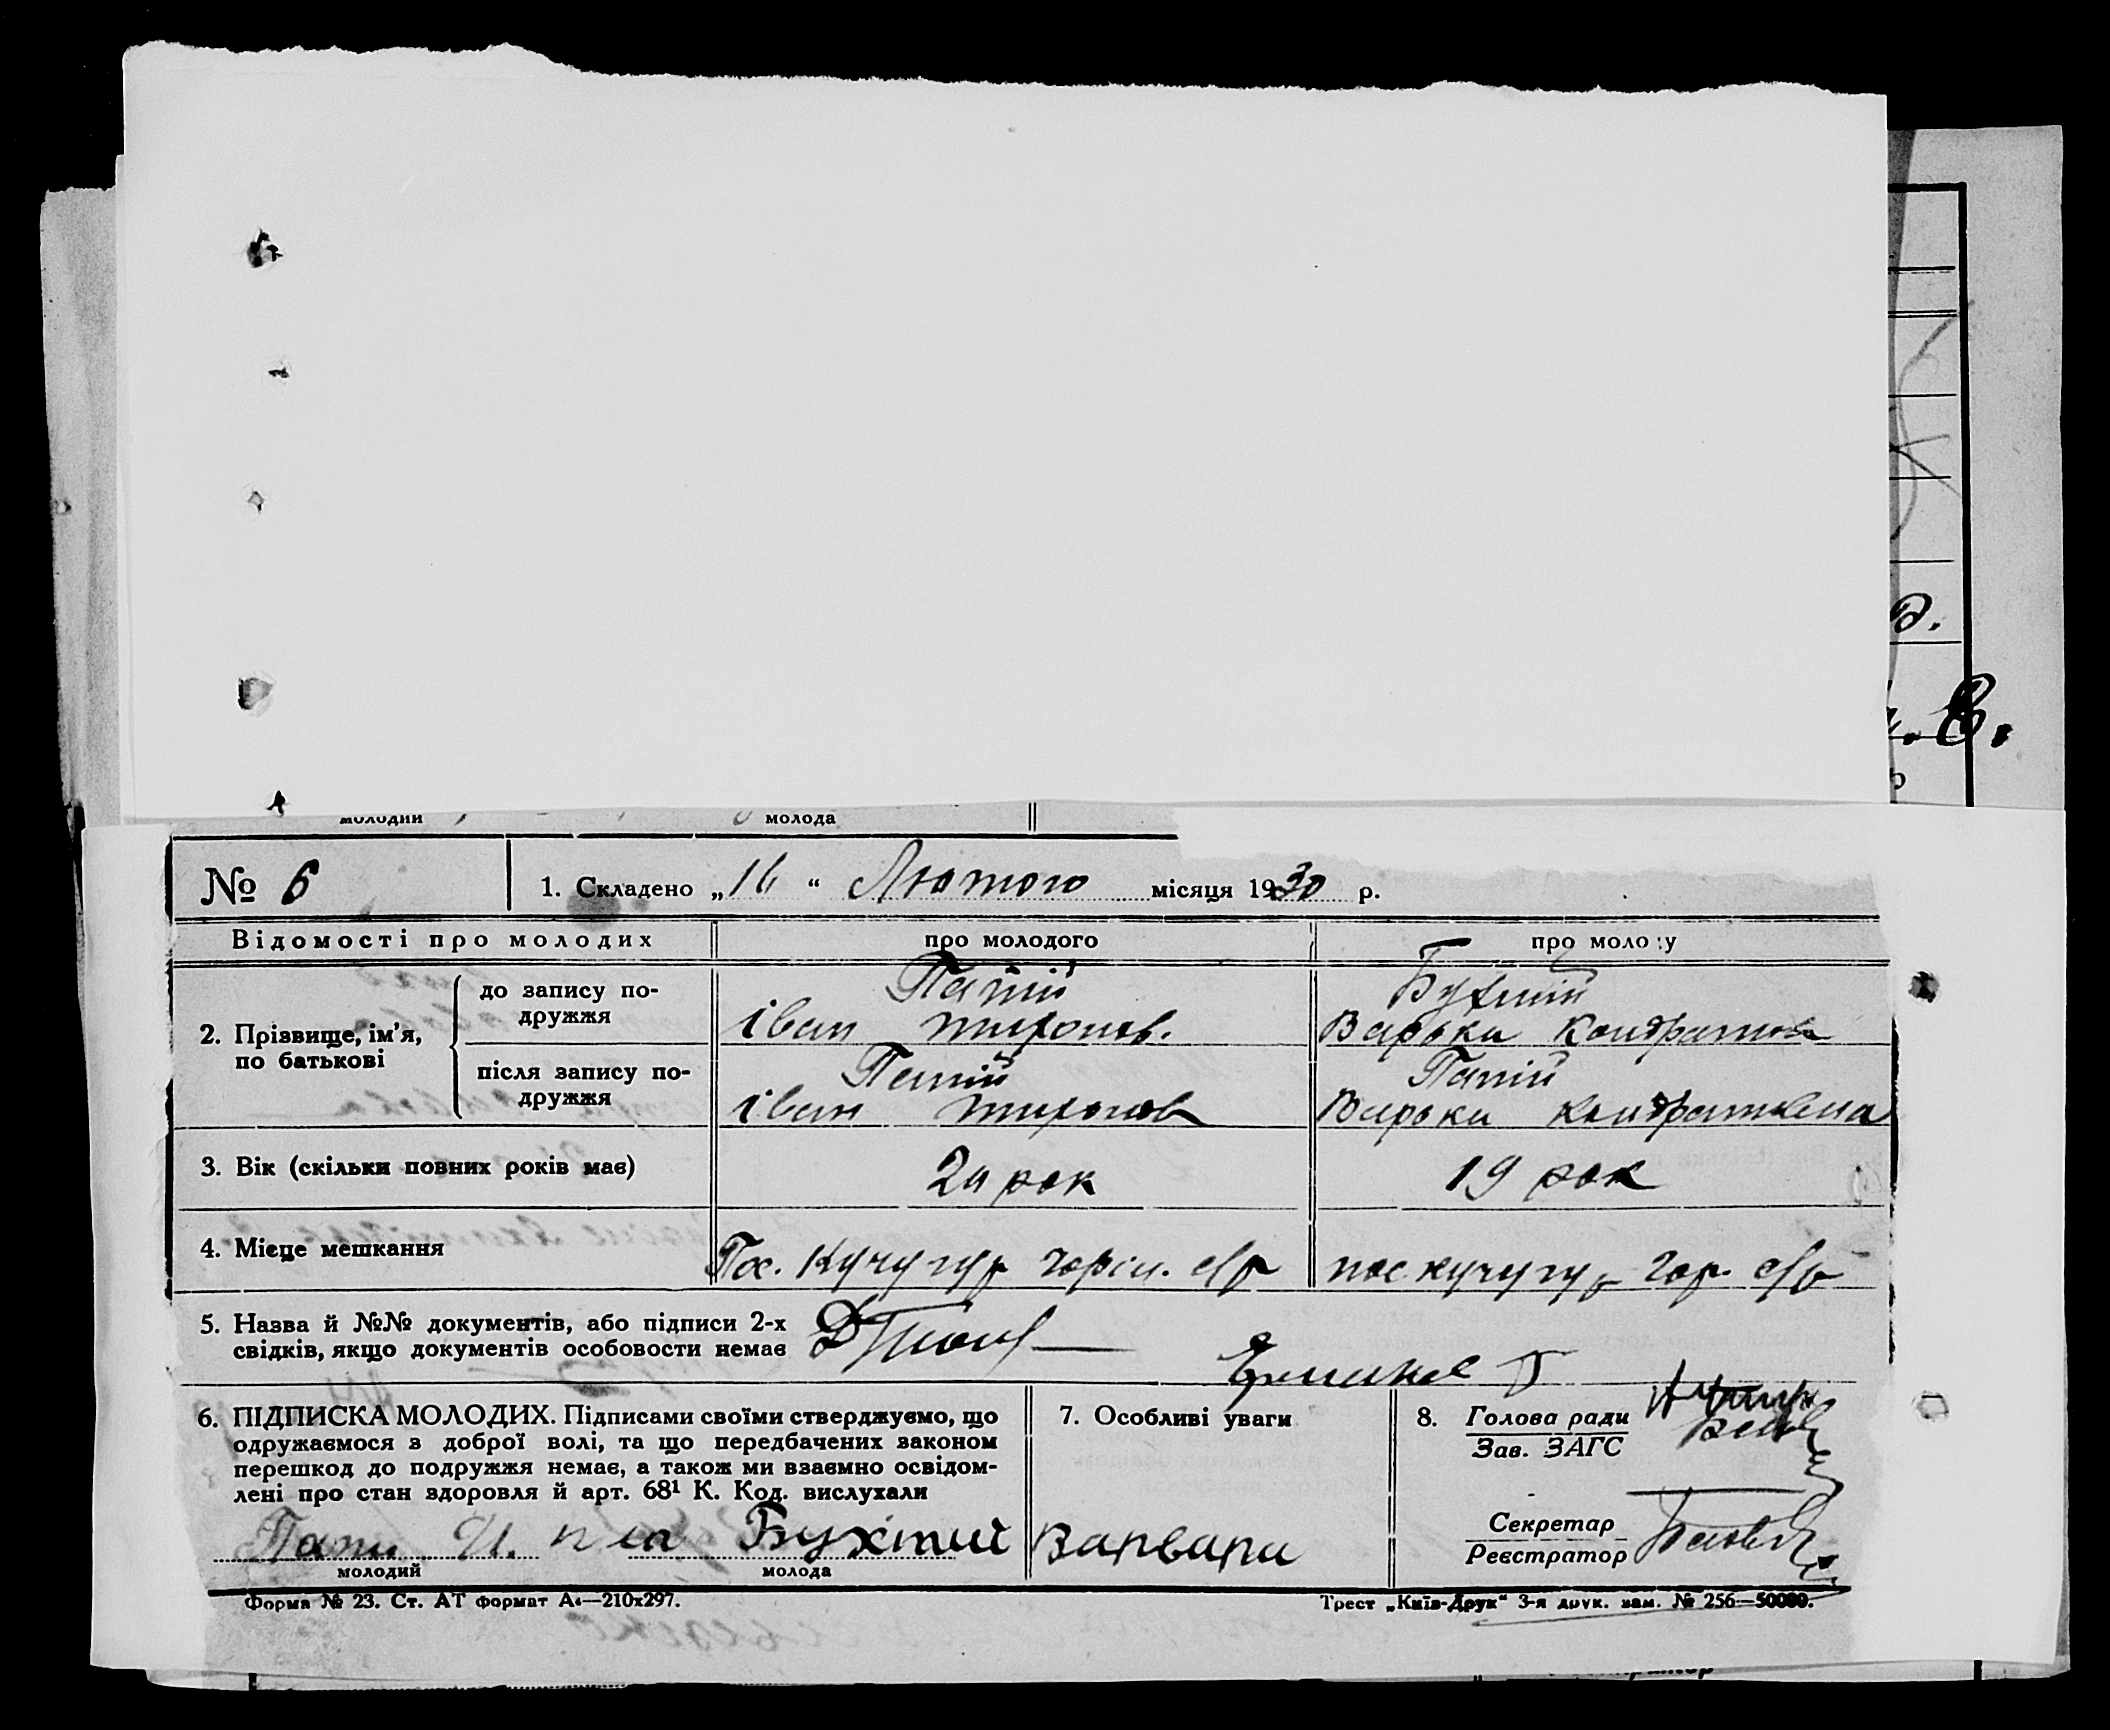 молодий молода
№ 6 1. Складено „16“ Лютого місяця 1930 р.
Відомості про молодих про молодого про молоду
2. Прізвище, ім’я, по батькові
до запису подружжя
Папій
Іван Тихонов.
Бухтій
Варька Кондратов
після запису подружжя
Папій
Іван Тихонов
Папій
Варька Кондратовна
3. Вік (скільки повних років має) 24 рок 19 рок
4. Місце мешкання Пос. Кучугур Горін. с/р пос кучугур Гор. с/р
5. Назва й №№ документів, або підписи 2-х
свідків, якщо документів особовости немає
6. ПІДПИСКА МОЛОДИХ. Підписами своїми стверджуємо, що
одружаємося з доброї волі, та що передбачених законом
перешкод до подружжя немає, а також ми взаємно освідом-
лені про стан здоровля й арт. 68¹ К. Код. вислухали
7. Особливі уваги
8. Голова ради
Зав. ЗАГС
Секретар
Реєстратор
Папи И. Бухтий Варвара
молодий молода
Форма № 23. Ст. АТ формат А4—210х297. Трест „Київ-Друк“ 3-я друк. зам. № 256—50000.